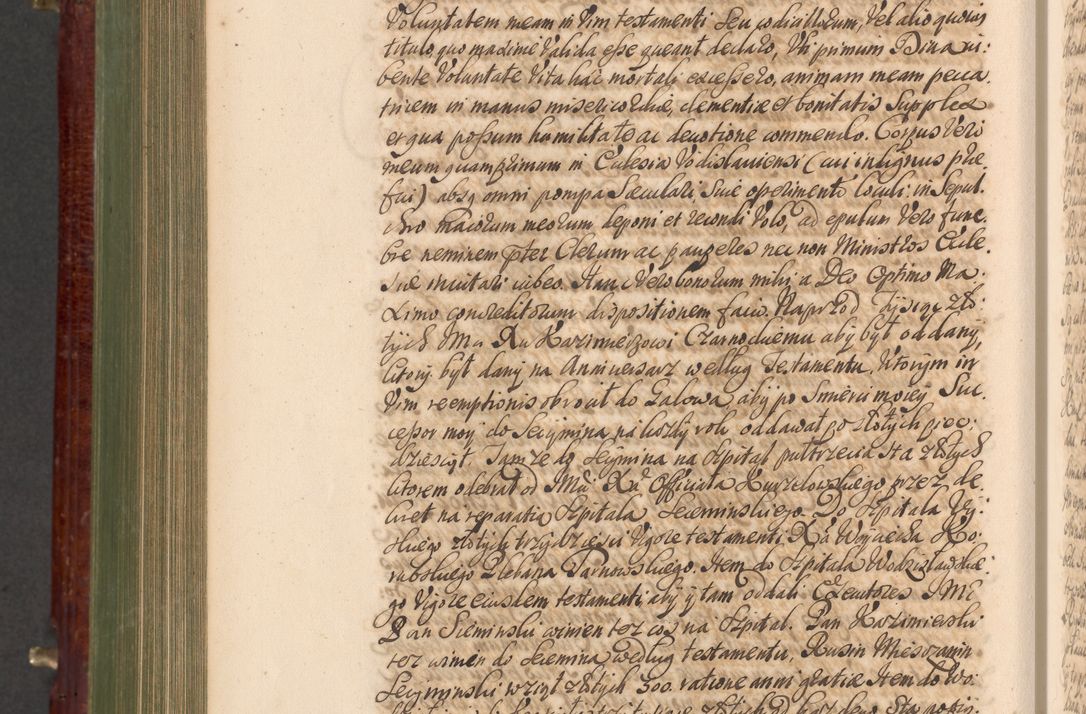 Voluntatem meam in Vim testamenti Seu codicillorum, Vel alio quovis
titulo quo maxime Valida esse queant declaro, Vti primum Divina vi:
bente Voluntate Vita hac mortali excessero, animam meam pecca
tricem in manus misericordiæ, clementiæ et bonitatis Supplex
et qua possum humilitate ac devotione commendo. Corpus Vero
meum quamprimum in Ecclesia Vodislaviensi (cui indignus præ
fui) absq omni pompa Sæculari, Sive operimento loculi in Sepul
chro maiorum meorum, deponi et recondi Volo, ad epulum Vero fune
bre neminem pter Clerum ac pauperes nec non Ministros Eccle
siæ invitari iubeo. Hanc Vero bonorum mihi a Deo Optimo Ma
ximo concreditorum dispositionem facio. Naprzod Tysiąc zło:
tych Im Xu Kazimierzowi Czarnockiemu aby był oddany,
ktory był dany na Anniversarz według Testamentu, ktorym in
Vim reemptionis obrocił do Lalowa, aby po Smierci moiey Suc
cessor moy do Secymina na kozdy rok oddawał po złotych piec:
dziesiąt Tamze do Secymina na Szpital pułtrzecia sta złotych
ktorem odebrał od Imci Xa Officiała Kurzelowskiego przez de
kret na reparatią Szpitala Seceminskiego. Do Szpitala Wy:
skiego złotych trzydziesci Vigore testamenti Xa Woyciecha Ko:
rabskiego Plebana Tarnowskiego. Item do Szpitala Wodzisławskie
go Vigore eiusdem testamenti, aby y tam oddali Exekutores IME
Pan Sieminski winien tez cos na Szpital. Pan Kazimierski
tez winien do Secemina według testamentu, Rusin Mieszczanin
Secyminski wziął złotych 300. ratione anni gratiæ Item do Wo